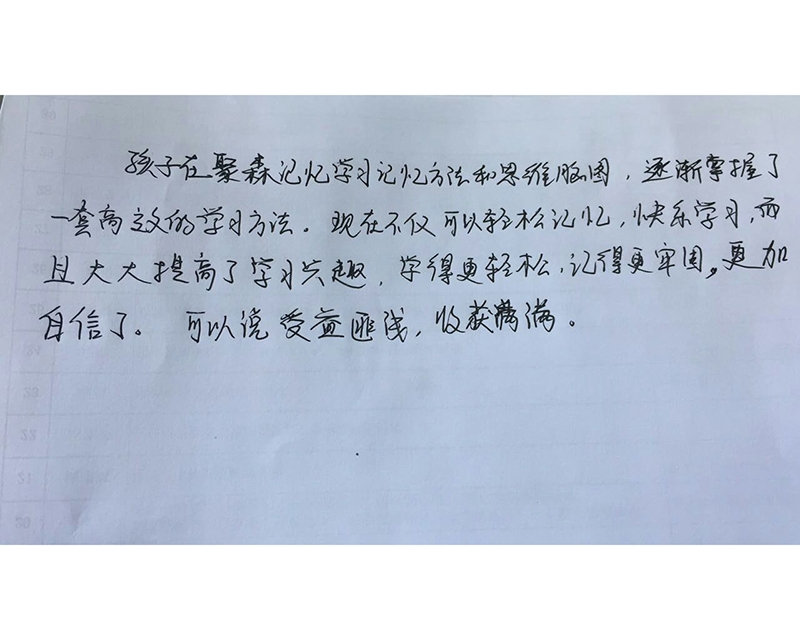 孩子在聚森记忆学习记忆方法和思维脑图，逐渐掌握了
一套高效的学习方法。现在不仅可以轻松记忆，快乐学习，而
且大大提高了学习兴趣，学得更轻松，记得更牢固。更加
自信了。可以说受益匪浅，收获满满。